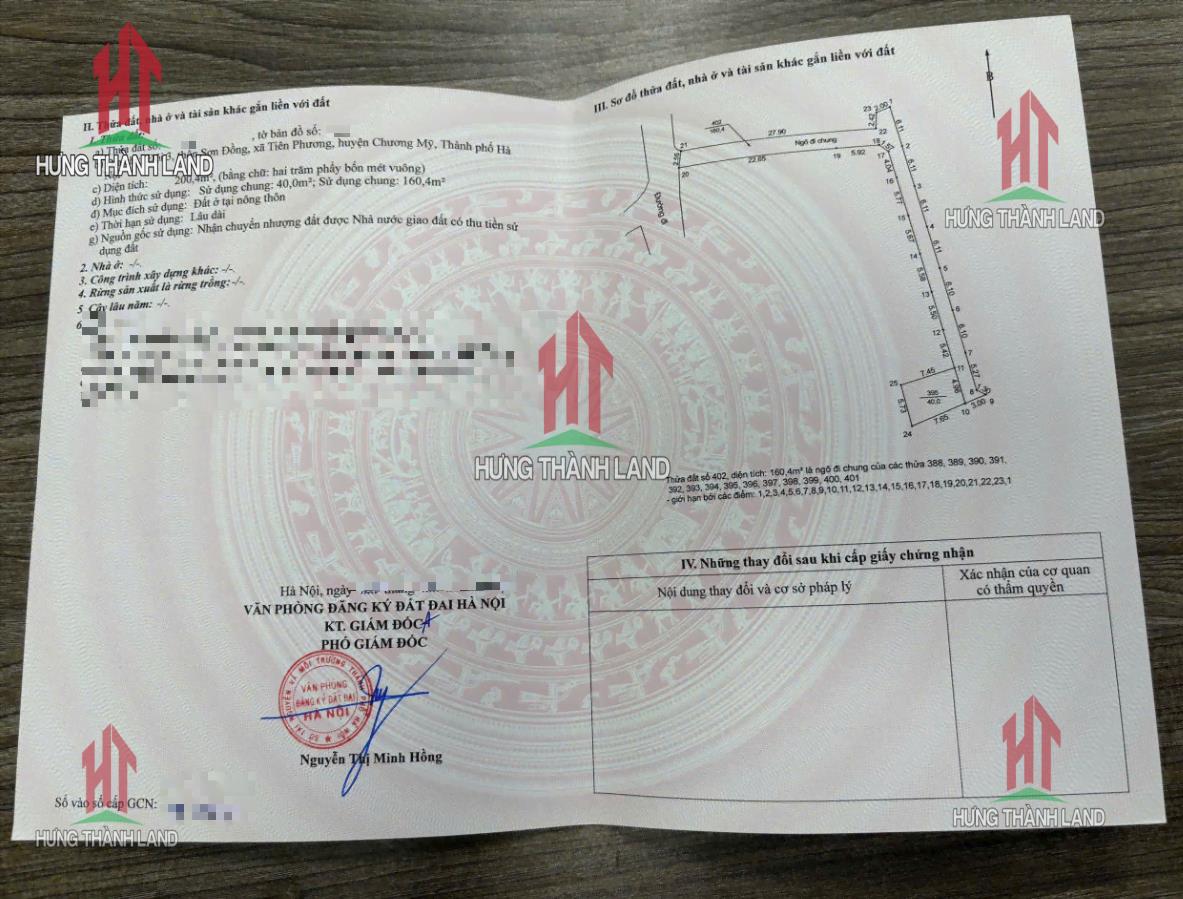 II. Thửa đất, nhà ở và tài sản khác gắn liền với đất
1. Thửa đất:
a) Thửa đất số: , tờ bản đồ số:
Sơn Đồng, xã Tiên Phương, huyện Chương Mỹ, Thành phố Hà
c) Diện tích: 200,4m², (bằng chữ: hai trăm phẩy bốn mét vuông)
d) Hình thức sử dụng: Sử dụng chung: 40,0m²; Sử dụng chung: 160,4m²
đ) Mục đích sử dụng: Đất ở tại nông thôn
e) Thời hạn sử dụng: Lâu dài
g) Nguồn gốc sử dụng: Nhận chuyển nhượng đất được Nhà nước giao đất có thu tiền sử
dụng đất
2. Nhà ở: -/-.
3. Công trình xây dựng khác: -/-.
4. Rừng sản xuất là rừng trồng: -/-.
5 Cây lâu năm: -/-.
6
Hà Nội, ngày
VĂN PHÒNG ĐĂNG KÝ ĐẤT ĐAI HÀ NỘI
KT. GIÁM ĐỐC
PHÓ GIÁM ĐỐC
VĂN PHÒNG
ĐĂNG KÝ ĐẤT ĐAI
HÀ NỘI
Nguyễn Thị Minh Hồng
Số vào sổ cấp GCN:
III. Sơ đồ thửa đất, nhà ở và tài sản khác gắn liền với đất
B
402
160,4
27.90
Ngõ đi chung
22.65
5.92
19
18
17
22
23
2.00
1
2.42
1.57
21
2.55
20
Đường đi
6.11
2
3.11
3
3.11
4
6.11
5
6.10
6
6.10
7
5.27
8
9
3.00
10
4.98
11
5.42
12
5.50
13
5.58
14
5.67
15
5.77
16
4.04
7.45
25
5.73
24
7.65
398
40,0
Thửa đất số 402, diện tích: 160,4m² là ngõ đi chung của các thửa 388, 389, 390, 391,
392, 393, 394, 395, 396, 397, 398, 399, 400, 401
- giới hạn bởi các điểm: 1,2,3,4,5,6,7,8,9,10,11,12,13,14,15,16,17,18,19,20,21,22,23,1
IV. Những thay đổi sau khi cấp giấy chứng nhận
Nội dung thay đổi và cơ sở pháp lý
Xác nhận của cơ quan
có thẩm quyền
HƯNG THÀNH LAND
HƯNG THÀNH LAND
HƯNG THÀNH LAND
HƯNG THÀNH LAND
HƯNG THÀNH LAND